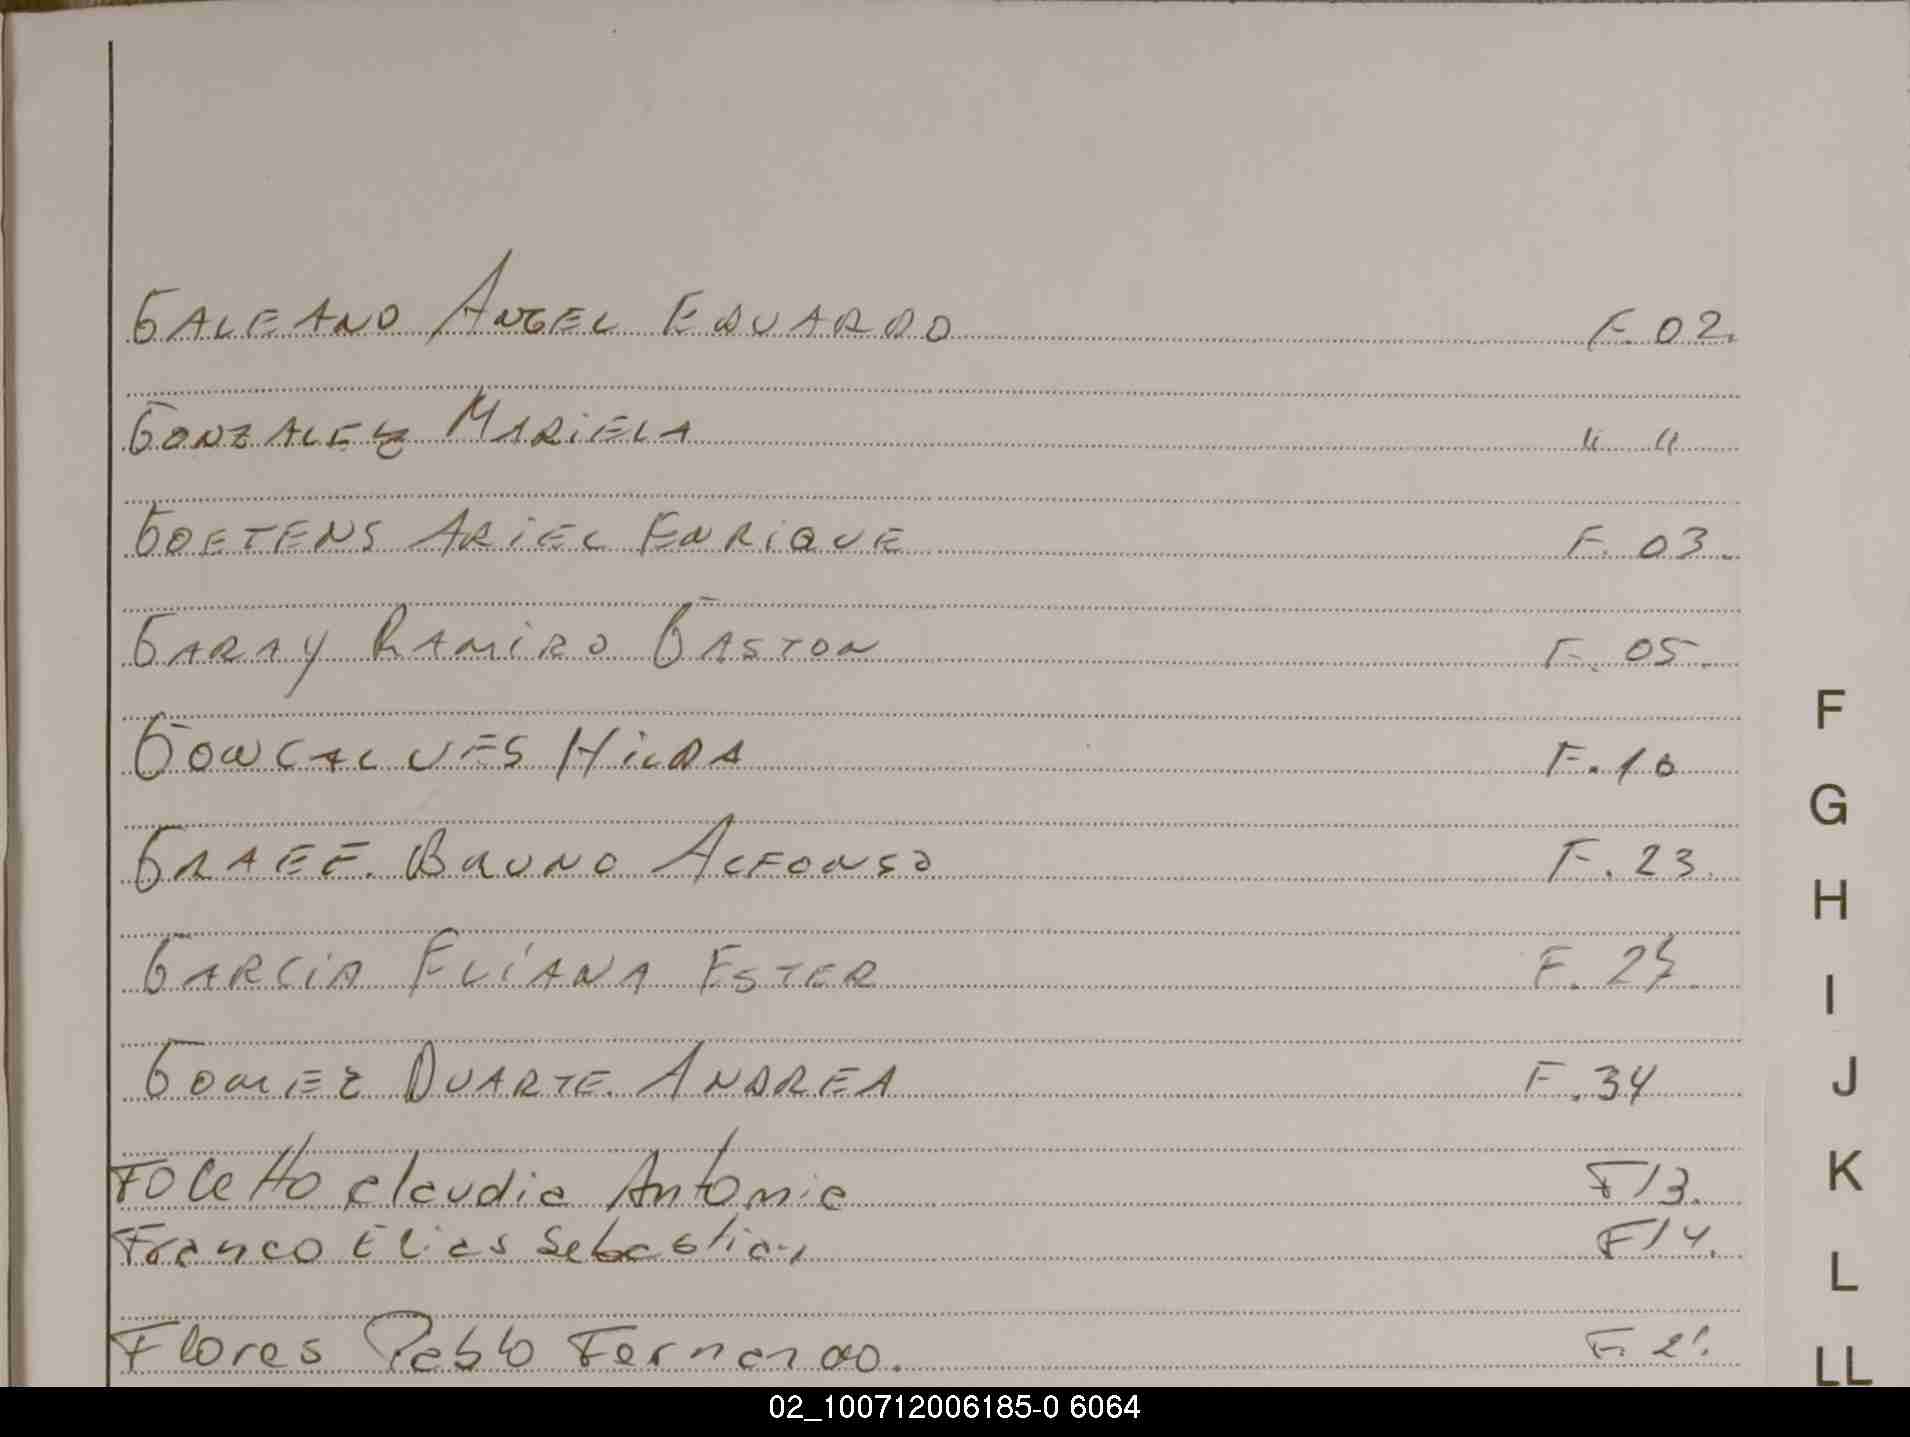 GALEANO ANGEL EDUARDO F. 02.
GONZALEZ MARIELA " "
GOETENS ARIEL ENRIQUE F. 03.
GARAY RAMIRO GASTON F. 05.
GONCALVES HILDA F. 10
GRAEF. BRUNO ALFONSO F. 23.
GARCIA ELIANA ESTER F.
GOMEZ DUARTE. ANDREA F. 34
Claudia Antonia F13.
Franco Elias Sebastian F14.
Flores Pablo Fernando. F. 21
F
G
H
I
J
K
L
LL
02_100712006185-0 6064